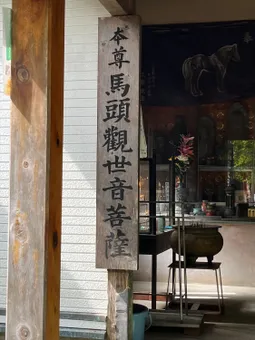 本尊馬頭觀世音菩薩